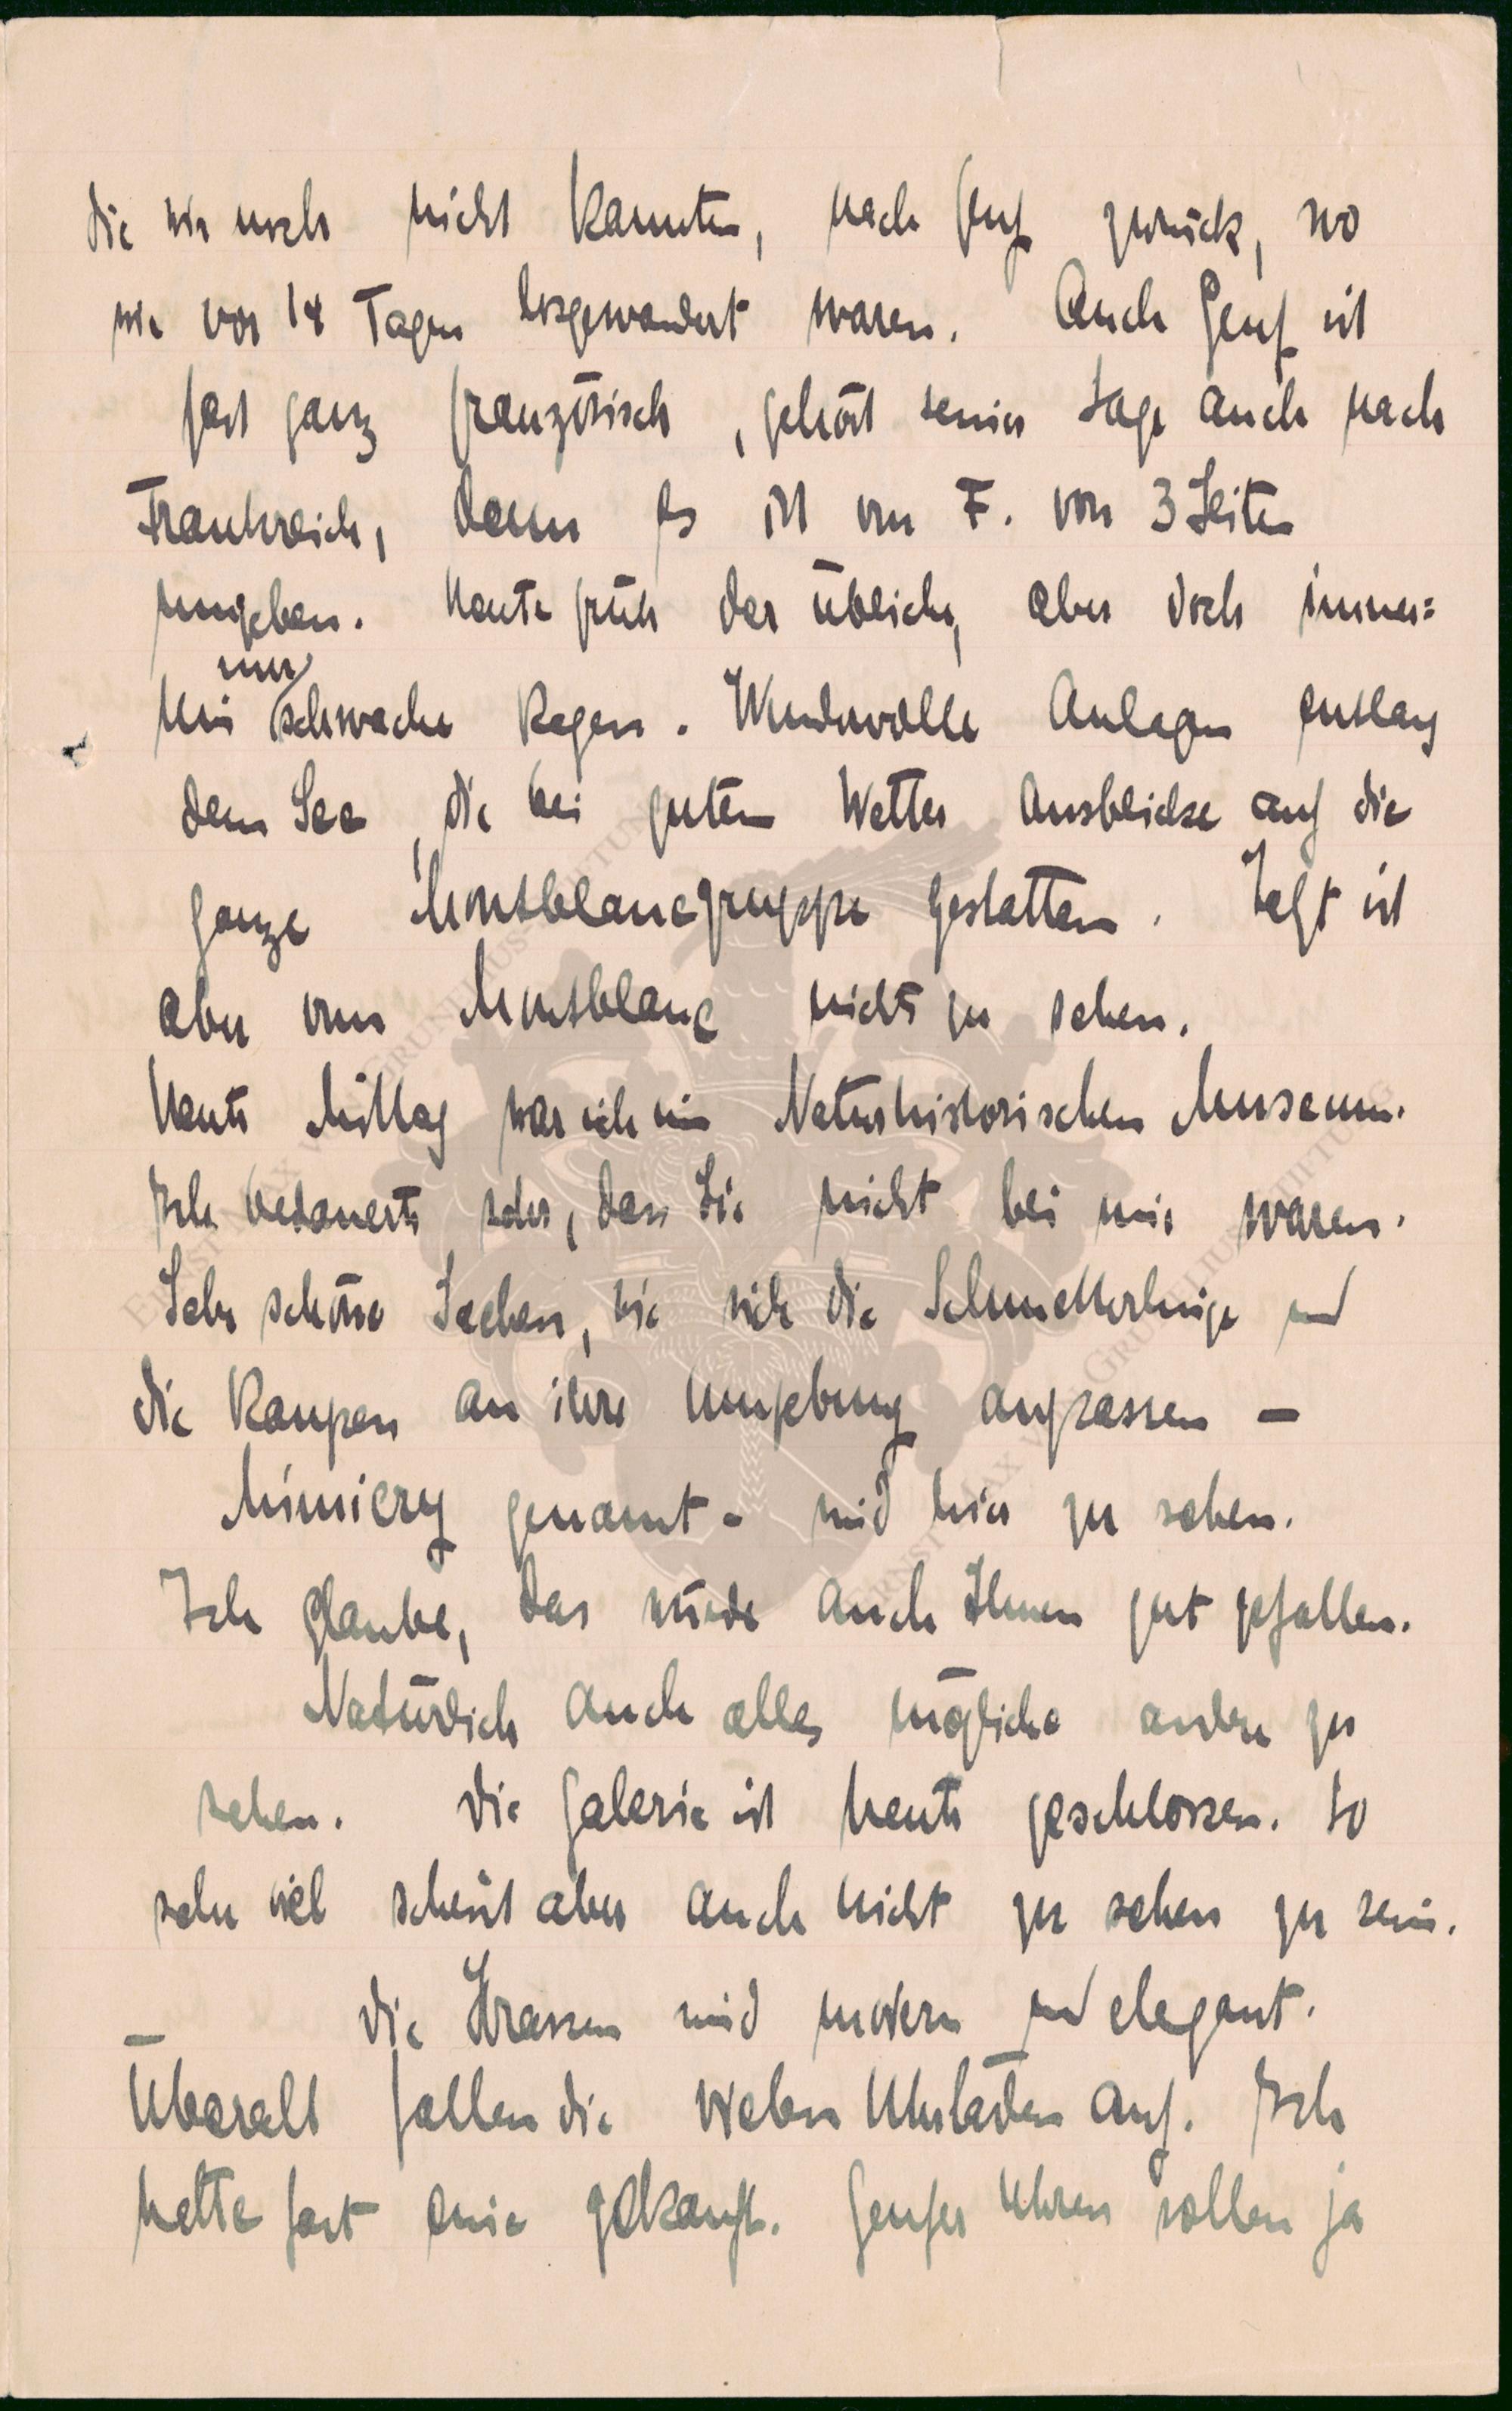 die wir noch nicht kannten, nach Genf zurück, wo
wir vor 14 Tagen losgewandert waren. Auch Genf ist
fast ganz französisch, gehört seiner Lage auch nach
Frankreich, denn es ist von F. von 3 Seiten
umgeben. Heute früh der übliche, aber doch immer=
hin nur schwache Regen. Wundervolle Anlagen entlang
dem See, die bei gutem Wetter Ausblicke auf die
ganze Montblancgruppe gestatten. Jetzt ist
aber vom Montblanc nichts zu sehen.
Heute Mittag war ich im Naturhistorischen Museum.
Ich bedauerte sehr, dass Sie nicht bei mir waren.
Sehr schöne Sachen, wie sich die Schmetterlinge und
die Raupen an ihre Umgebung anpassen –
Mimicry genannt – sind hier zu sehen.
Ich glaube, das würde auch Ihnen gut gefallen.
Natürlich auch alles mögliche andre zu
sehen. Die Galerie ist heute geschlossen. So
sehr viel scheint aber auch nicht zu sehen zu sein.
Die Strassen sind modern und elegant.
Überall fallen die vielen Uhrläden auf. Ich
hätte fast eine gekauft. Genfer Uhren sollen ja
ERNST MAX VON GRUNELIUS-STIFTUNG
ERNST MAX VON GRUNELIUS-STIFTUNG